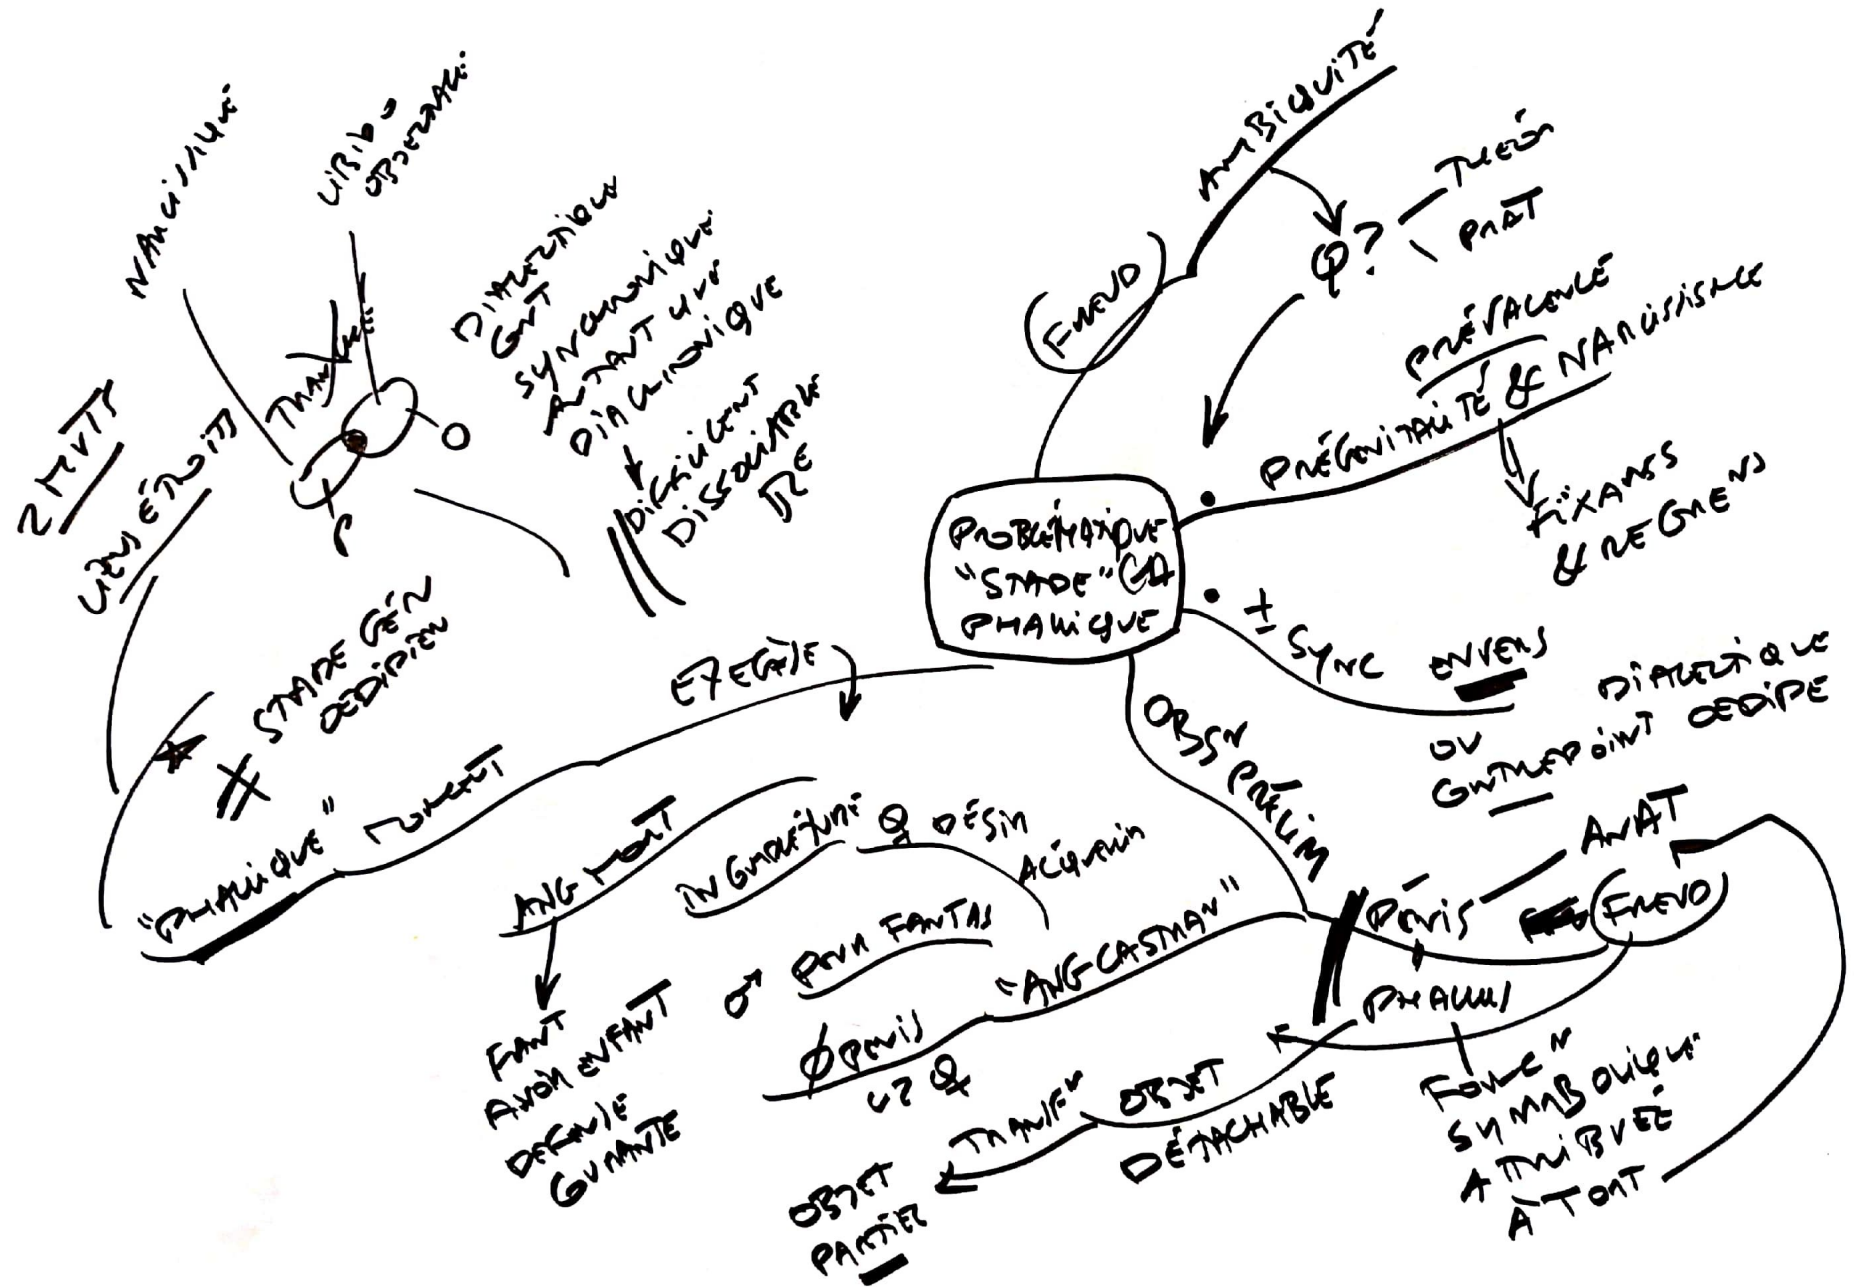 PROBLÉMATIQUE
"STADE"
PHALLIQUE
FREUD
AMBIGUITÉ
Q?
THEÓR
PRAT
PRÉVALENCE
PRÉGÉNITALITÉ & NARCISSISME
FIXANS
& REGRENS
± SYNC
ENVERS
OU
CONTREPOINT
DIALECTIQUE
OEDIPE
OBSN PRÉLIM
PÉNIS
ANAT
FREUD
PHALLUS
SYMBOLIQUE
ATTRIBUÉE
À TORT
OBJET
DÉTACHABLE
TRANSFN
OBJET
PARTIEL
"ANG CASTRAN"
♂ POUR FANTAS
Ø PENIS
♀
INCOMPLÉTUDE
♀ DÉSIR
ACQUÉRIR
EXEGÈSE
ANG MORT
FANT
AVOIR ENFANT
DÉFENSE
"PHALLIQUE" MOMENT
≠ STADE GÉN
OEDIPIEN
2 MVTS
LIENS ÉTROITS
NARCISSIQUE
LIBIDO
OBJECTALE
O
P
DIALECTIQUE
CONT
SYNCHRONIQUE
AUTANT QUE
DIACHRONIQUE
DIFFICILEMENT
DISSOCIABLE